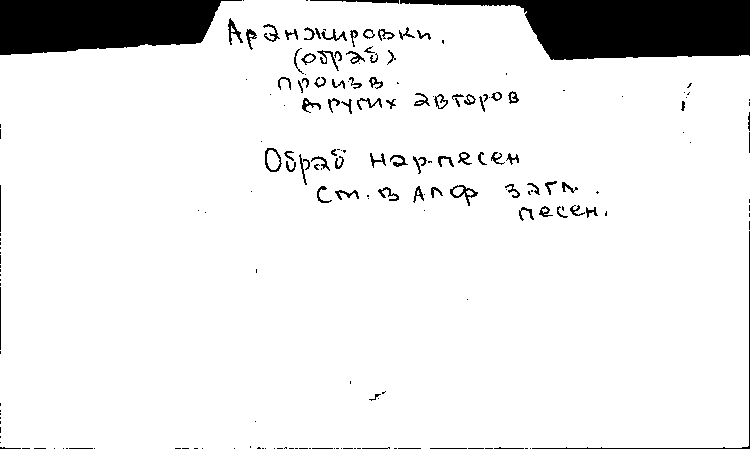 Аранжировки.
(обраб)
произв.
других авторов
Обраб нар.песен
см. в Алф загл.
песен.